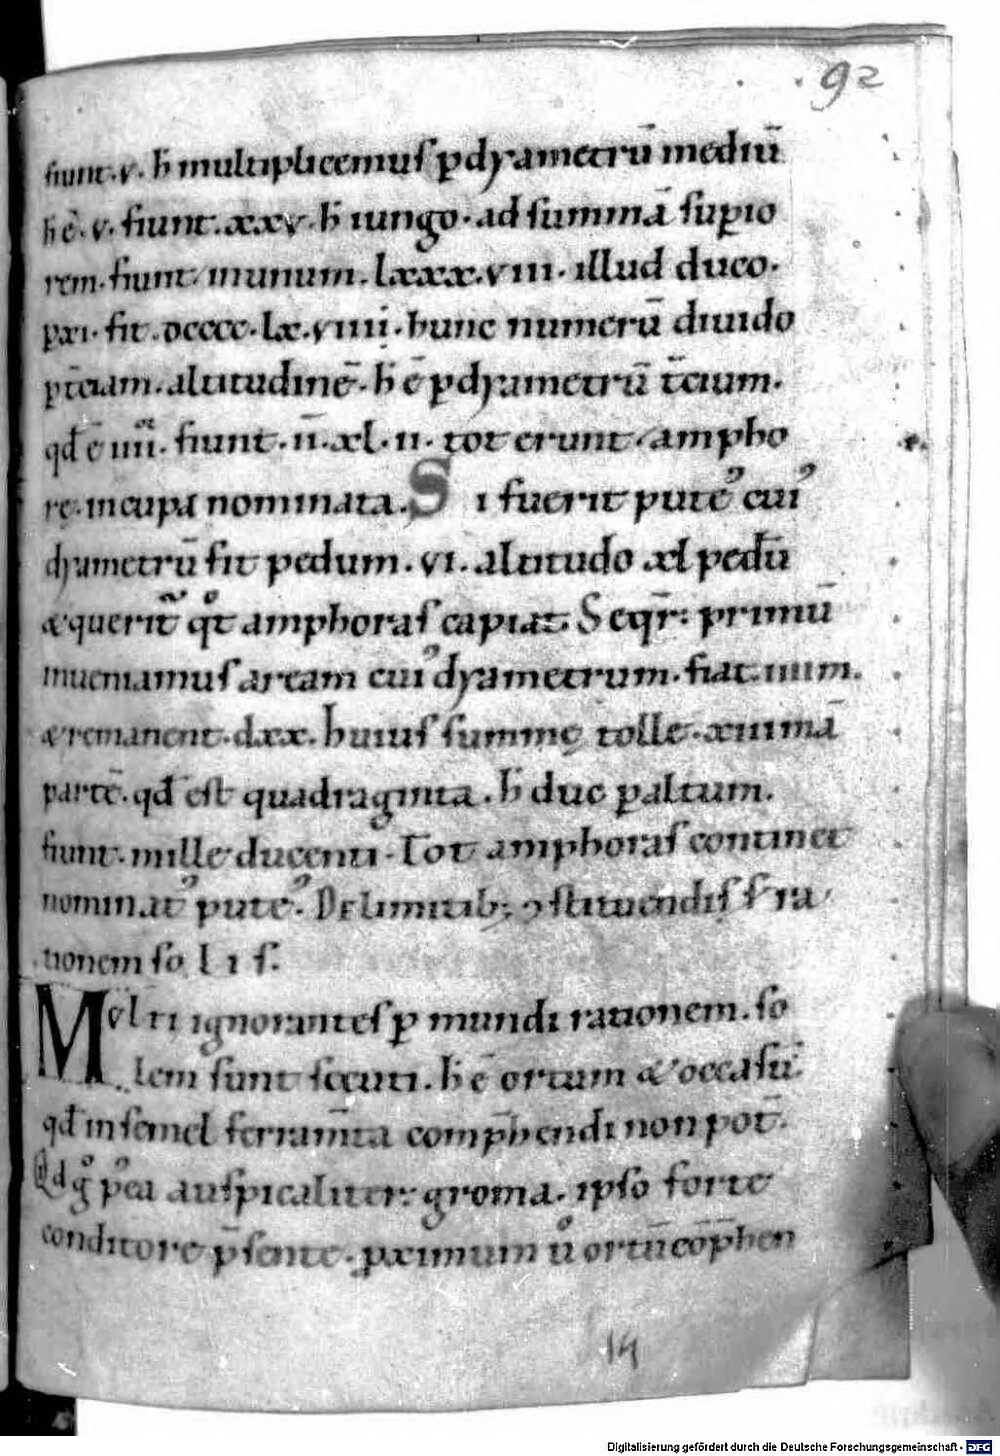 92
fiunt .v. h̄ multiplicemus ꝑ dyametrū mediū
h̄ ē .v. fiunt .xxv. h̄ iungo . ad summā supio
rem . fiunt in unum . lxxx.viii . illud duco .
p xi . fit . dcccc . lx.viiii . hunc numerū diuido
p t̄ciam . altitudinē . h̄ ē ꝑ dyametrū t̄cium .
qđ ē iiii . fiunt . ii . xl . ii . tot erunt ampho
re . in cupa nominata . Si fuerit puteꝰ cuiꝰ
dyametrū sit pedum . vi . altitudo xl pedū
& querit̃ qͦt amphoras capiat . Seqr̄ : primū
inueniamus aream cuiꝰ dyametrum . fiat
& remanent . dxx . huius summę tolle . xiii mā
partē . qđ est quadraginta . h̄ duc ꝑ altum .
fiunt . mille ducenti . Tot amphoras continet
nominatꝰ puteꝰ . De limitib; ꝯstituendis ra
tionem so l i s .
Mvlti ignorantes ꝑ mundi rationem . so
lem sunt secuti . h̄ ē ortum & occasū
qđ in semel ferram̄ta comp̄hendi non pot̄ .
Qd gͦ pꝰea auspicaliter : groma . ipso forte
conditore p̄sente . ꝓximum uͦ ortū cōp̄hen
14
Digitalisierung gefördert durch die Deutsche Forschungsgemeinschaft - DFG